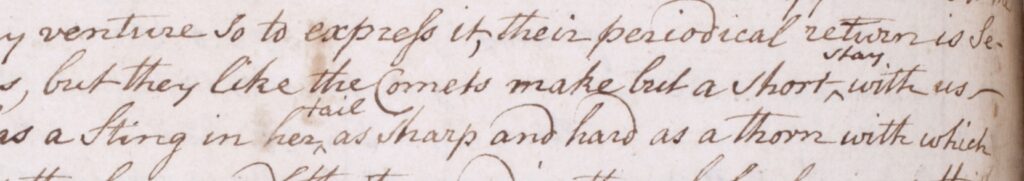 y venture so to express it, their periodical return is Se-
s, but they like the Comets make but a short ^stay with us –
as a Sting in her ^tail as sharp and hard as a thorn with which